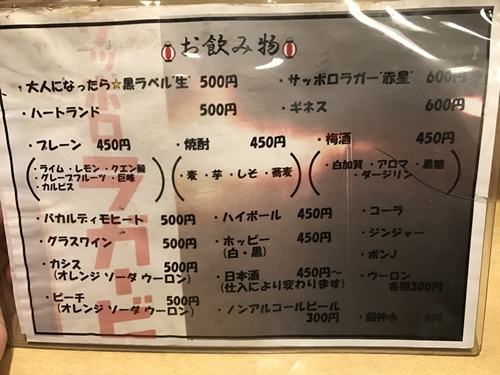 お飲み物
・大人になったら☆黒ラベル"生" 500円
・サッポロラガー"赤星" 600円
・ハートランド 500円
・ギネス 600円
・プレーン 450円
・焼酎 450円
・梅酒 450円
・ライム ・レモン ・クエン酸
・グレープフルーツ ・巨峰
・カルピス
・麦 ・芋 ・しそ ・蕎麦
・白加賀 ・アロマ ・黒糖
・ダージリン
・バカルディモヒート 500円
・ハイボール 450円
・コーラ
・グラスワイン 500円
・ホッピー 450円
(白・黒)
・ジンジャー
・カシス 500円
(オレンジ ソーダ ウーロン)
・日本酒 450円～
(仕入により変わります)
・ポンJ
・ウーロン
各種300円
・ピーチ 500円
(オレンジ ソーダ ウーロン)
・ノンアルコールビール
300円
・超神水 0円